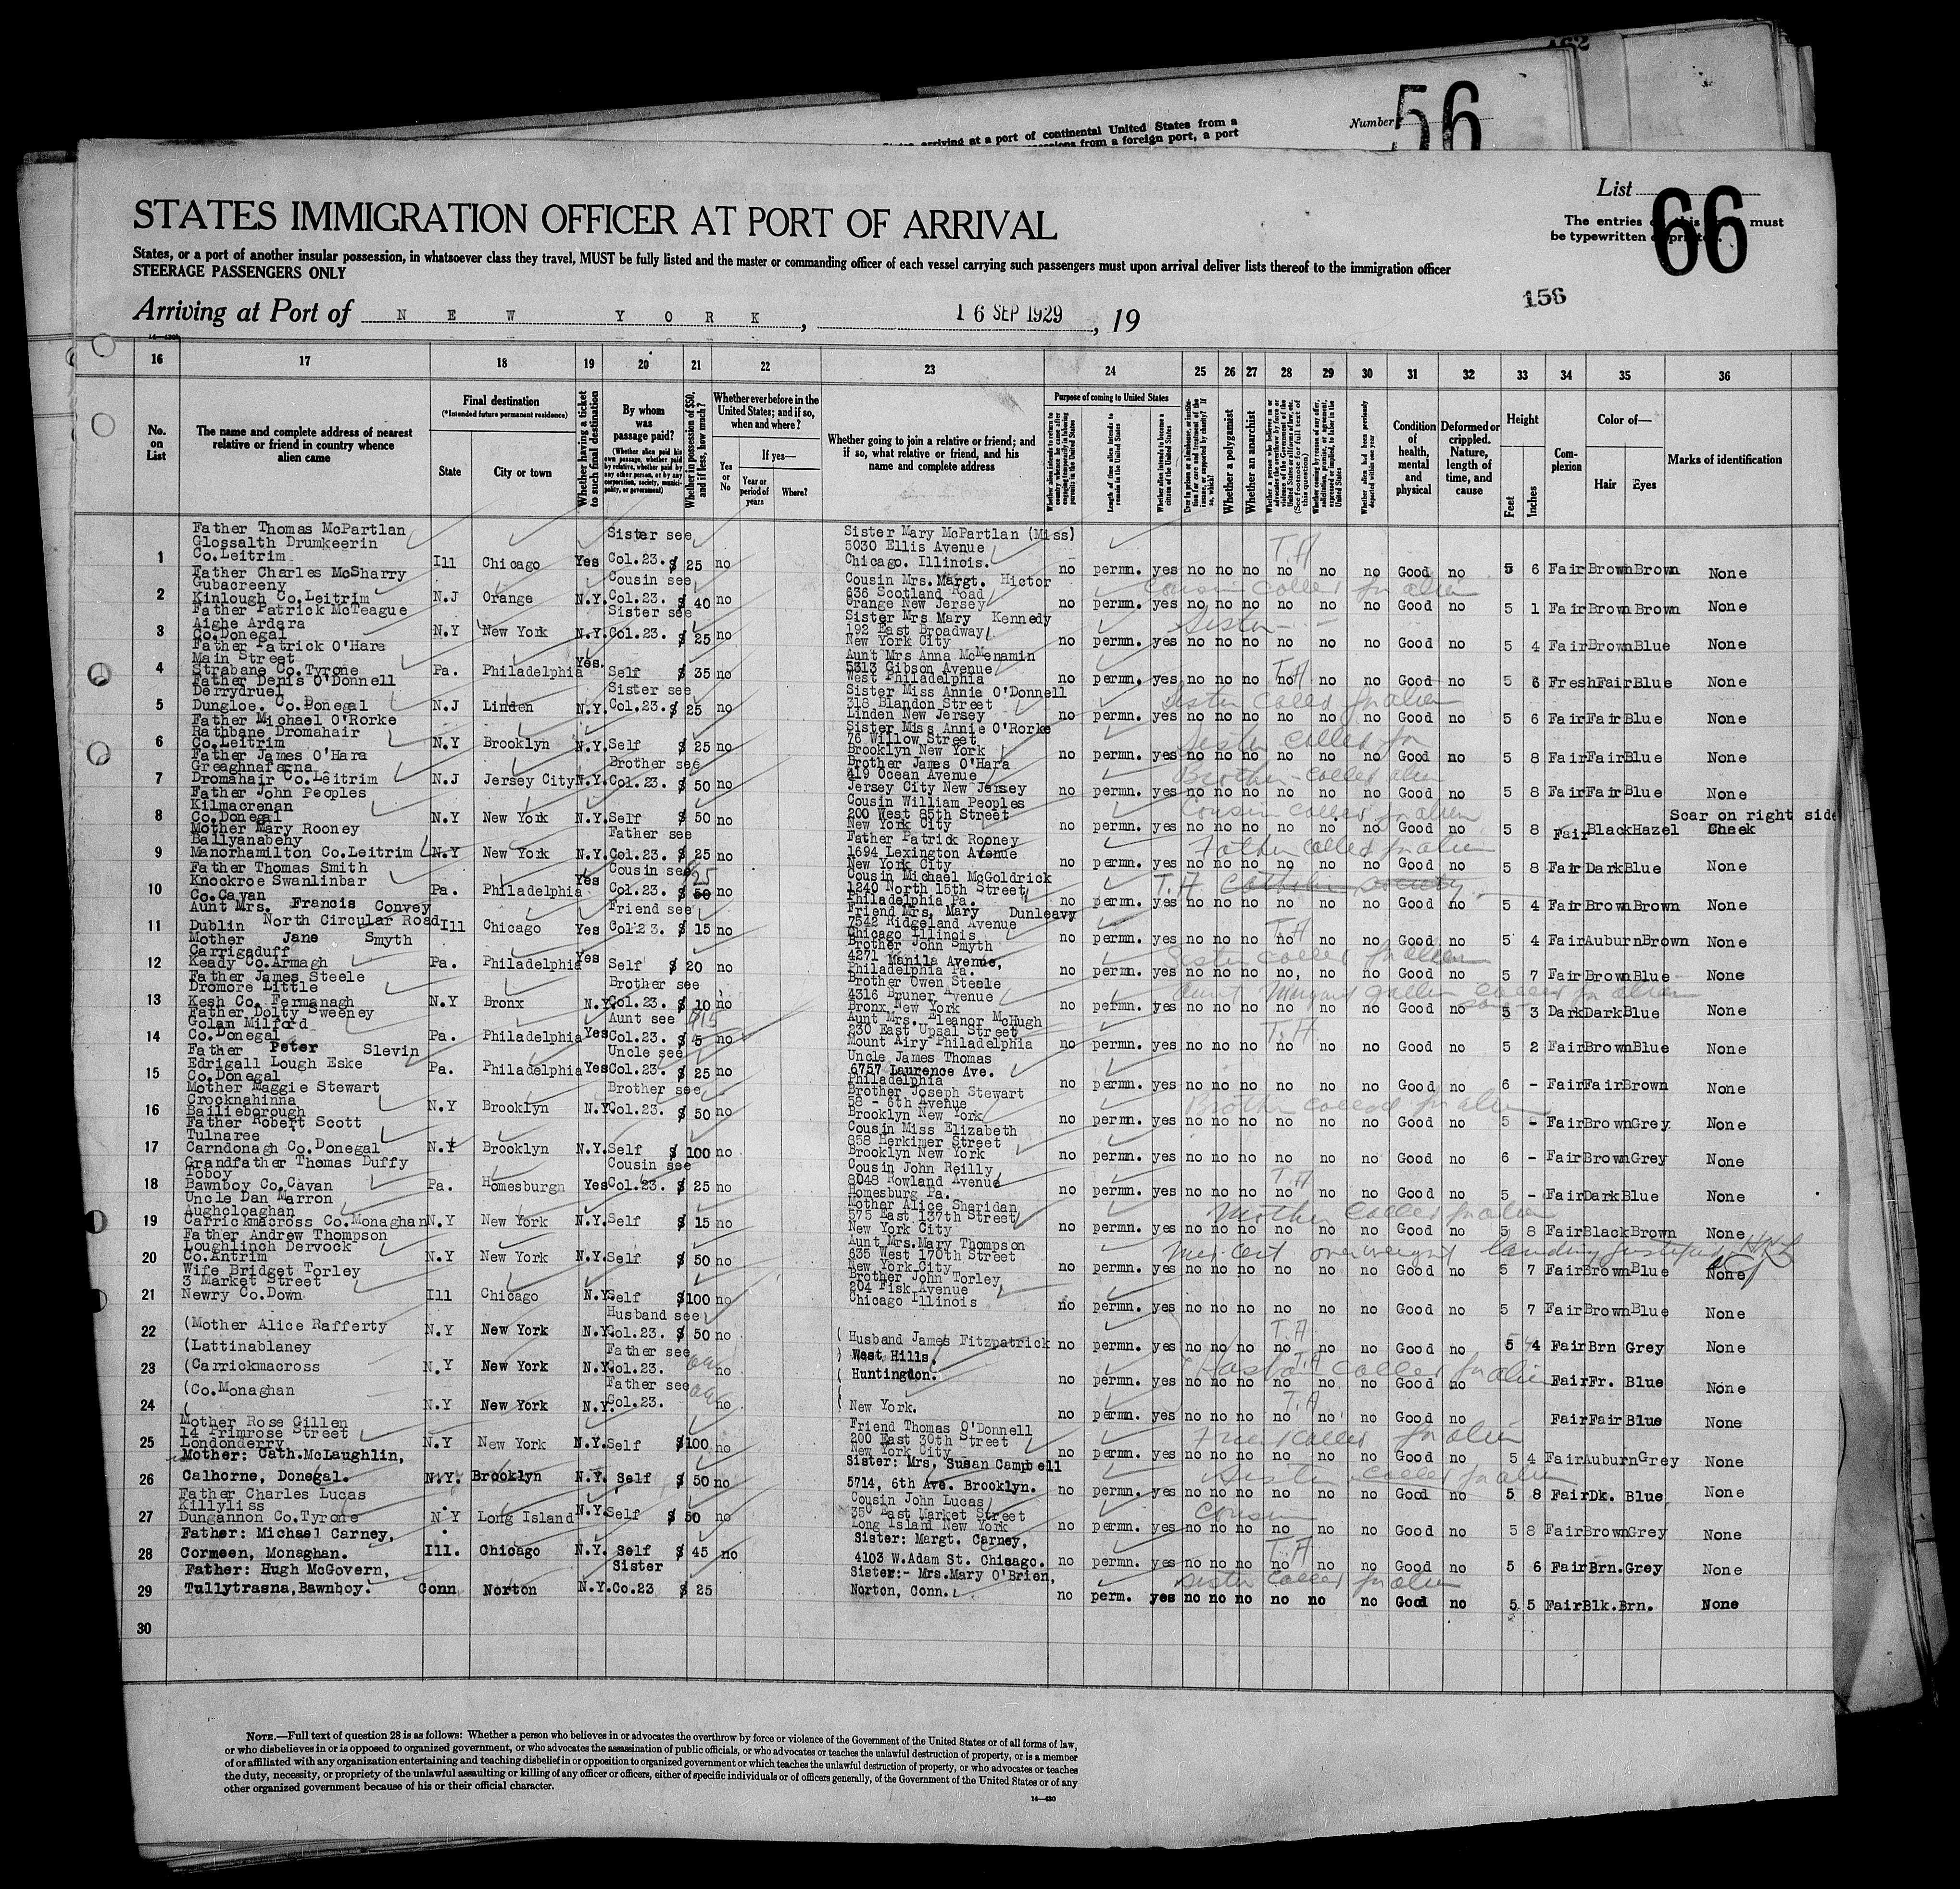 162
Number 56
States arriving at a port of continental United States from a
possessions from a foreign port, a port
List 66
The entries on this must
be typewritten or printed.
STATES IMMIGRATION OFFICER AT PORT OF ARRIVAL
States, or a port of another insular possession, in whatsoever class they travel, MUST be fully listed and the master or commanding officer of each vessel carrying such passengers must upon arrival deliver lists thereof to the immigration officer
STEERAGE PASSENGERS ONLY
156
Arriving at Port of N E W Y O R K , 16 SEP 1929 , 19
16 17 18 19 20 21 22 23 24 25 26 27 28 29 30 31 32 33 34 35 36
No. on List
The name and complete address of nearest relative or friend in country whence alien came
Final destination
(*Intended future permanent residence)
State
City or town
Whether having a ticket to such final destination
By whom was passage paid?
(Whether alien paid his own passage, whether paid by relative, whether paid by any other person, or by any corporation, society, municipality, or government)
Whether in possession of $50, and if less, how much?
Whether ever before in the United States; and if so, when and where?
Yes or No
If yes—
Year or period of years
Where?
Whether going to join a relative or friend; and if so, what relative or friend, and his name and complete address
Purpose of coming to United States
Length of time alien intends to remain in the United States
Whether alien intends to become a citizen of the United States
Whether a polygamist
Whether an anarchist
Condition of health, mental and physical
Deformed or crippled. Nature, length of time, and cause
Height
Feet
Inches
Complexion
Color of—
Hair
Eyes
Marks of identification
Father Thomas McPartlan Sister see Sister Mary McPartlan (Miss)
Glossalth Drumkeerin 5030 Ellis Avenue T.A
1 Co.Leitrim Ill Chicago Yes Col.23. $ 25 no Chicago. Illinois. no permn. yes no no no no no no Good no 5 6 Fair Brown Brown None
Father Charles McSharry Cousin see Cousin Mrs.Margt. Hictor
Gubacreeny 636 Scotland Road Cousin called for alien
2 Kinlough Co.Leitrim N.J Orange N.Y. Col.23. $ 40 no Orange New Jersey no permn. yes no no no no no no Good no 5 1 Fair Brown Brown None
Father Patrick McTeague Sister see Sister Mrs Mary Kennedy
Aighe Ardara 192 East Broadway Sister
3 Co.Donegal N.Y New York N.Y. Col.23. $ 25 no New York City no permn. yes no no no no no no Good no 5 4 Fair Brown Blue None
Father Patrick O'Hare Aunt Mrs Anna McMenamin
Main Street 5313 Gibson Avenue T.A
4 Strabane Co.Tyrone Pa. Philadelphia Yes. Self $ 35 no West Philadelphia no permn. yes no no no no no no Good no 5 6 Fresh Fair Blue None
Father Denis O'Donnell Sister see Sister Miss Annie O'Donnell
Derrydruel 318 Blandon Street Sister called for alien
5 Dungloe. Co.Donegal N.J Linden N.Y. Col.23. $ 25 no Linden New Jersey no permn. yes no no no no no no Good no 5 6 Fair Fair Blue None
Father Michael O'Rorke Sister Miss Annie O'Rorke
Rathbane Dromahair 76 Willow Street Sister called for
6 Co.Leitrim N.Y Brooklyn N.Y. Self $ 25 no Brooklyn New York no permn. yes no no no no no no Good no 5 8 Fair Fair Blue None
Father James O'Hara Brother see Brother James O'Hara
Greaghnafarna 419 Ocean Avenue Brother called alien
7 Dromahair Co.Leitrim N.J Jersey City N.Y. Col.23. $ 50 no Jersey City New Jersey no permn. yes no no no no no no Good no 5 8 Fair Fair Blue None
Father John Peoples Cousin William Peoples
Kilmacrenan 200 West 85th Street Cousin called for alien Scar on right side
8 Co.Donegal N.Y New York N.Y. Self $ 50 no New York City no permn. yes no no no no no no Good no 5 8 Fair Black Hazel Cheek
Mother Mary Rooney Father see Father Patrick Rooney
Ballyanabehy 1694 Lexington Avenue Father called for alien
9 Manorhamilton Co.Leitrim N.Y New York N.Y. Col.23. $ 25 no New York City no permn. yes no no no no no no Good no 5 8 Fair Dark Blue None
Father Thomas Smith Cousin see 25 Cousin Michael McGoldrick
Knockroe Swanlinbar 1240 North 15th Street T.A Catholic Society
10 Co.Cavan Pa. Philadelphia Yes Col.23. $ 50 no Philadelphia Pa. no permn. yes no no no no no no Good no 5 4 Fair Brown Brown None
Aunt Mrs. Francis Convey Friend see Friend Mrs. Mary Dunleavy
North Circular Road 7542 Ridgeland Avenue T.A
11 Dublin Ill Chicago Yes Col.23. $ 15 no Chicago Illinois no permn. yes no no no no no no Good no 5 4 Fair Auburn Brown None
Mother Jane Smyth Brother John Smyth
Carrigaduff 4271 Manila Avenue, Sister called for alien
12 Keady Co.Armagh Pa. Philadelphia Yes Self $ 20 no Philadelphia Pa. no permn. yes no no no no, no no Good no 5 7 Fair Brown Blue None
Father James Steele Brother see Brother Owen Steele
Dromore Little 4316 Bruner Avenue called for alien
13 Kesh Co. Fermanagh N.Y Bronx N.Y. Col.23. $ 10 no Bronx New York no permn. yes no no no no no no Good no 5 3 Dark Dark Blue None
Father Dolty Sweeney Aunt see $15 Aunt Mrs. Eleanor McHugh
Golan Milford 230 East Upsal Street T.A
14 Co.Donegal Pa. Philadelphia Yes Col.23. $ 5 no Mount Airy Philadelphia no permn. yes no no no no no no Good no 5 2 Fair Brown Blue None
Father Peter Slevin Uncle see Uncle James Thomas
Edrigall Lough Eske 6757 Laurence Ave.
15 Co.Donegal Pa. Philadelphia Yes Col.23. $ 25 no Philadelphia no permn. yes no no no no no no Good no 6 - Fair Fair Brown None
Mother Maggie Stewart Brother see Brother Joseph Stewart
Crocknahinna 58 - 6th Avenue Brother called for alien
16 Bailieborough N.Y Brooklyn N.Y. Col.23. $ 50 no Brooklyn New York no permn. yes no no no no no no Good no 5 - Fair Brown Grey None
Father Robert Scott Cousin Miss Elizabeth
Tulnaree 858 Herkimer Street
17 Carndonagh Co.Donegal N.Y Brooklyn N.Y. Self $ 100 no Brooklyn New York no permn. yes no no no no no no Good no 6 - Fair Brown Grey None
Grandfather Thomas Duffy Cousin see Cousin John Reilly
Toboy 8048 Rowland Avenue T.A
18 Bawnboy Co.Cavan Pa. Homesburgh Yes Col.23. $ 25 no Homesburg Pa. no permn. yes no no no no no no Good no 5 - Fair Dark Blue None
Uncle Dan Marron Mother Alice Sheridan
Aughcloaghan 575 East 137th Street Mother called for alien
19 Carrickmacross Co.Monaghan N.Y New York N.Y. Self $ 15 no New York City no permn. yes no no no no no no Good no 5 8 Fair Black Brown None
Father Andrew Thompson Aunt Mrs.Mary Thompson
Loughlinch Dervock 635 West 170th Street Med. cert overweight landing justified
20 Co.Antrim N.Y New York N.Y. Self $ 50 no New York City no permn. yes no no no no no no Good no 5 7 Fair Brown Blue None
Wife Bridget Torley Brother John Torley
3 Market Street 204 Fisk Avenue
21 Newry Co.Down Ill Chicago N.Y. Self $100 no Chicago Illinois no permn. yes no no no no no no Good no 5 7 Fair Brown Blue None
Husband see T.A
22 (Mother Alice Rafferty N.Y New York N.Y. Col.23. $ 50 no ( Husband James Fitzpatrick no permn. yes no no no no no no Good no 5 4 Fair Brn Grey None
(Lattinablaney Father see ) West Hills. Husband called for alien
23 (Carrickmacross N.Y New York N.Y. Col.23. no ( Huntingdon. no permn. yes no no no no no no Good no Fair Fr. Blue None
(Co.Monaghan Father see ( T.A
24 ( N.Y New York N.Y. Col.23. no ( New York. no permn. yes no no no no no no Good no Fair Fair Blue None
Mother Rose Gillen Friend Thomas O'Donnell
14 Primrose Street 200 East 30th Street Friend called for alien
25 Londonderry N.Y New York N.Y. Self $100 no New York City no permn. yes no no no no no no Good no 5 4 Fair Auburn Grey None
Mother: Cath.McLaughlin, Sister: Mrs. Susan Campbell Sister called for alien
26 Calhorne, Donegal. N.Y. Brooklyn N.Y. Self $ 50 no 5714, 6th Ave. Brooklyn. no permn. yes no no no no no no Good no 5 8 Fair Dk. Blue None
Father Charles Lucas Cousin John Lucas
Killyliss 350 East Market Street Cousin
27 Dungannon Co.Tyrone N Y Long Island N.Y. Self $ 50 no Long Island New York no permn. yes no no no no no no Good no 5 8 Fair Brown Grey None
Father: Michael Carney, Sister: Margt. Carney, T.A
28 Cormeen, Monaghan. Ill. Chicago N.Y. Self $ 45 no 4103 W.Adam St. Chicago. no permn. yes no no no no no no Good no 5 6 Fair Brn. Grey None
Father: Hugh McGovern, Sister Sister:- Mrs.Mary O'Brien, Sister called for alien
29 Tullytrasna,Bawnboy. Conn Norton N.Y. Co.23 $ 25 Norton, Conn. no perm. yes no no no no no no Good no 5 5 Fair Blk. Brn. None
30
NOTE.—Full text of question 28 is as follows: Whether a person who believes in or advocates the overthrow by force or violence of the Government of the United States or of all forms of law,
or who disbelieves in or is opposed to organized government, or who advocates the assassination of public officials, or who advocates or teaches the unlawful destruction of property, or is a member
of or affiliated with any organization entertaining and teaching disbelief in or opposition to organized government or which teaches the unlawful destruction of property, or who advocates or teaches
the duty, necessity, or propriety of the unlawful assaulting or killing of any officer or officers, either of specific individuals or of officers generally, of the Government of the United States or of any
other organized government because of his or their official character.
14—430